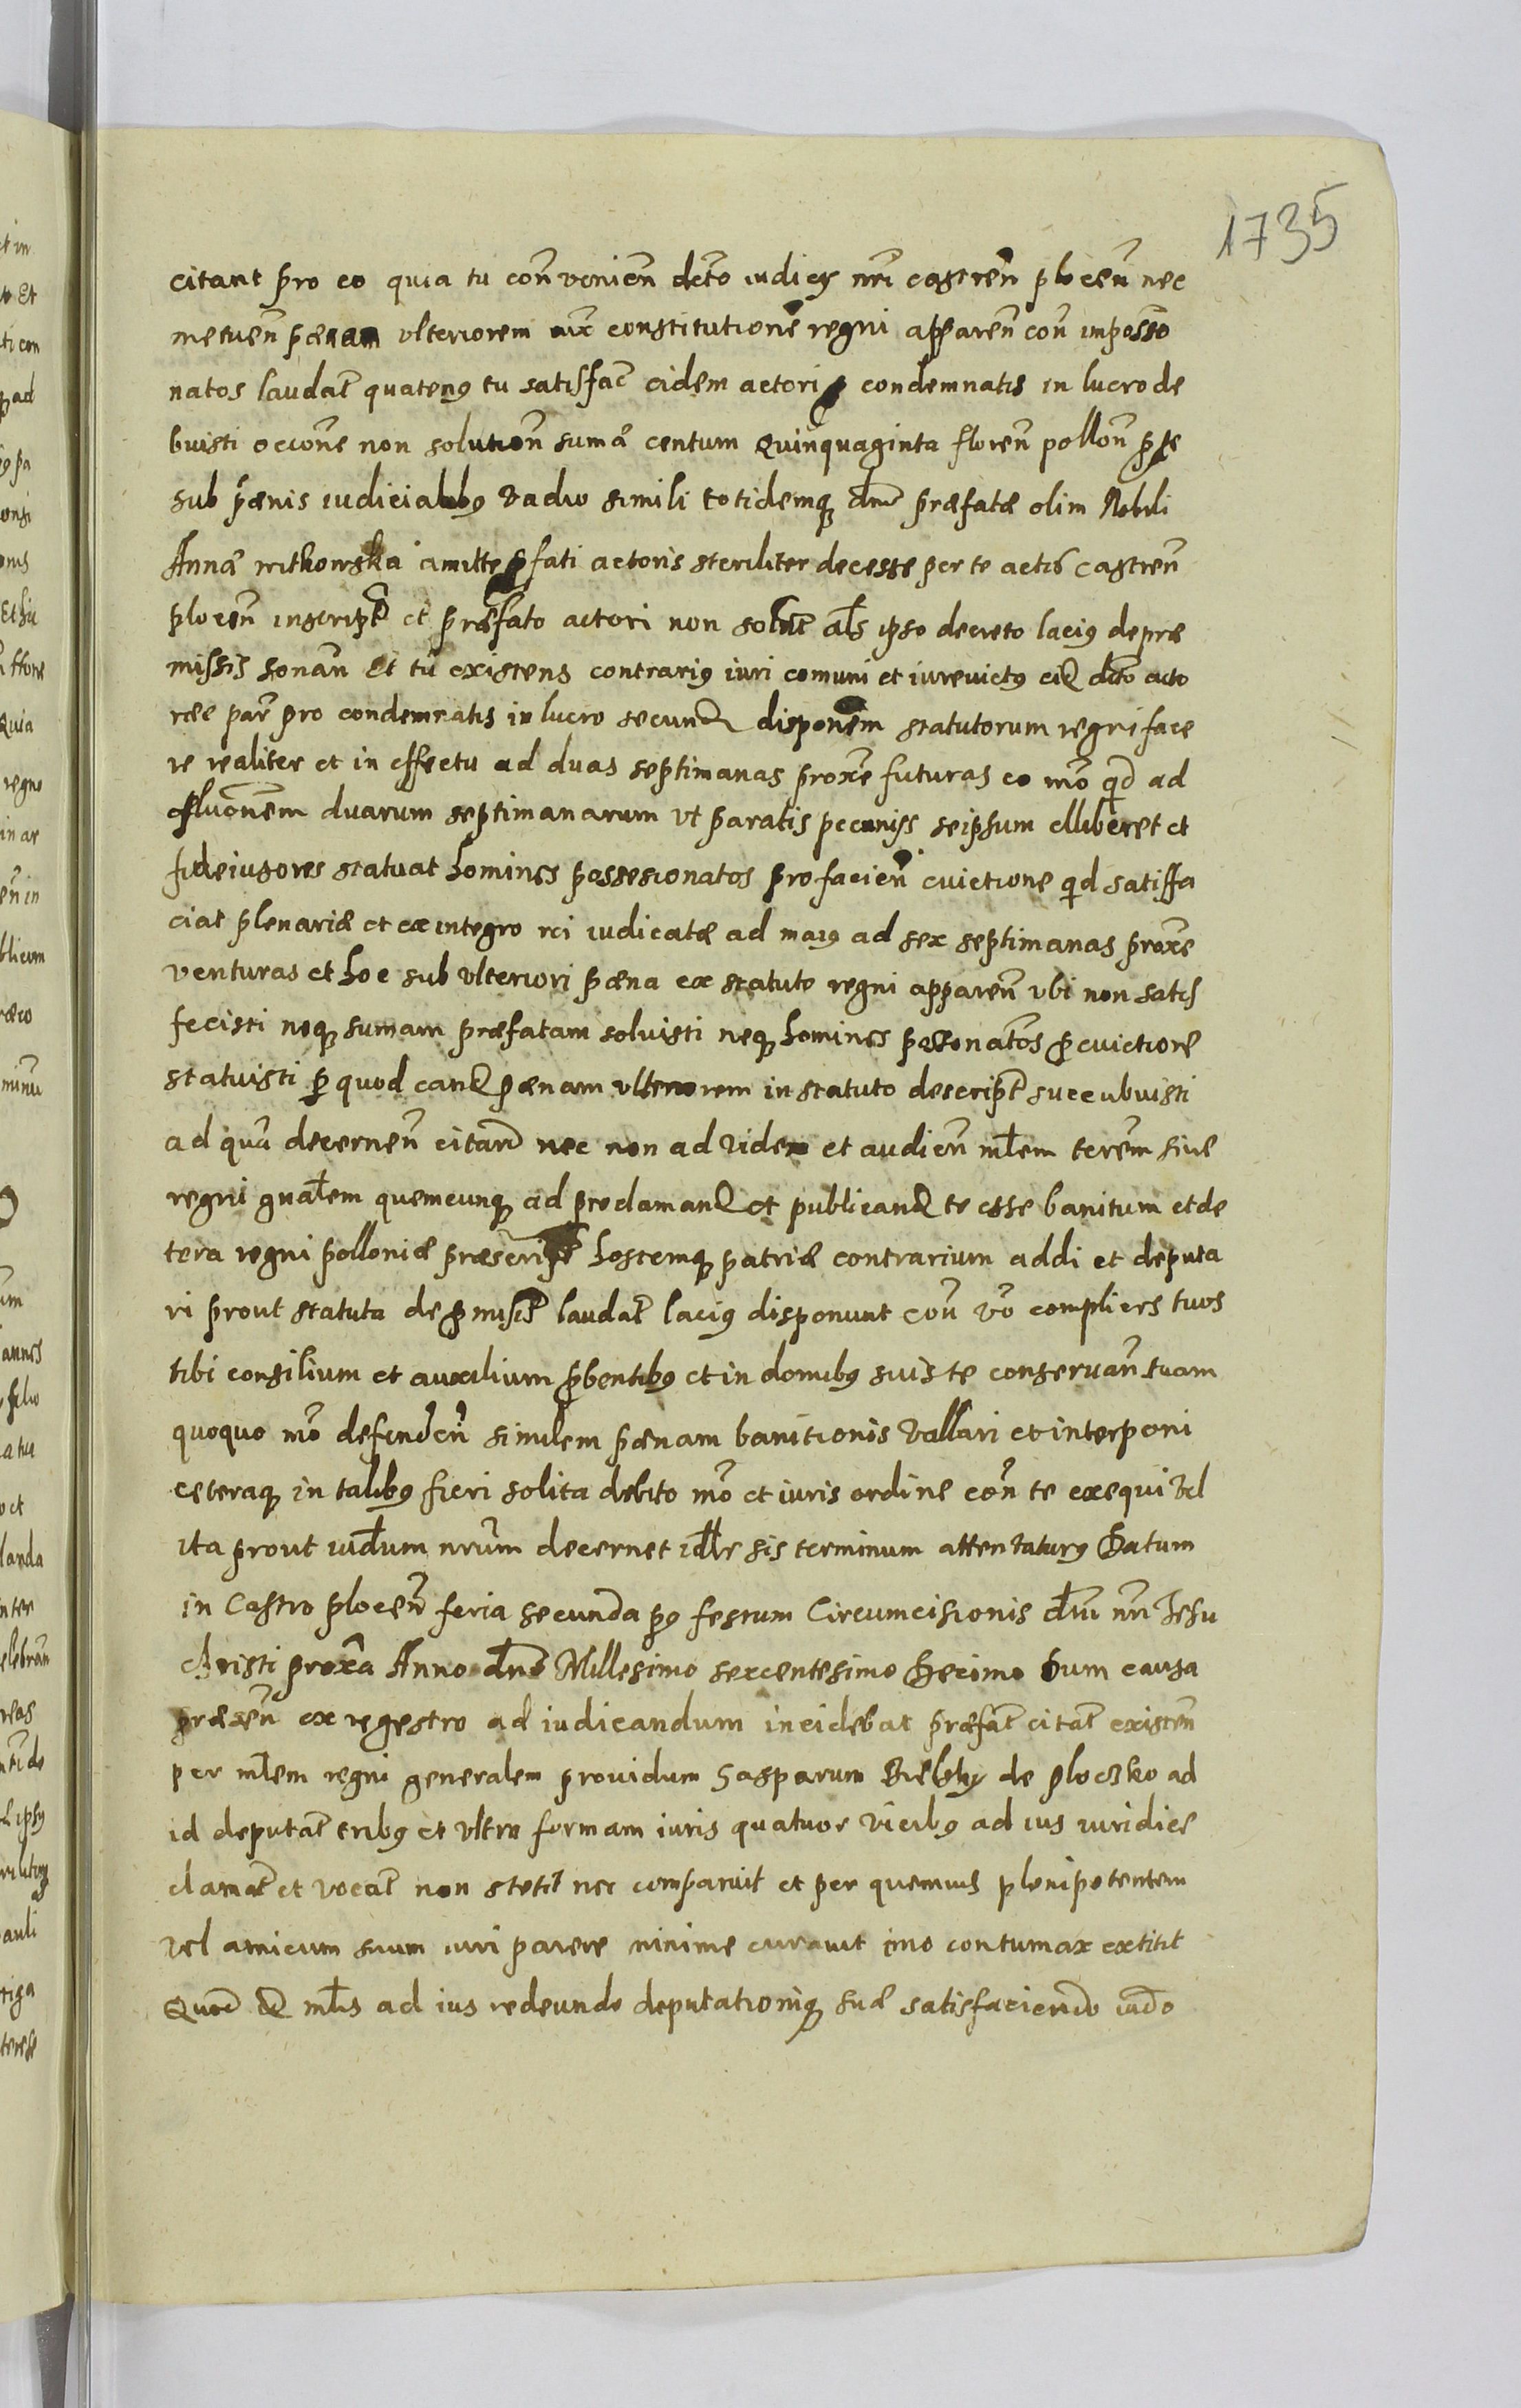 1735
citant pro eo quia tu convenien̄ dcto iudicÿ nri castren̄ plocen̄ nec
metuen̄ pænam vlteriorem constitutionē regni apparen̄ con̄ imposso
natos laudat̄ quatenꝰ tu satisfac̄ eidem actori condemnatis in lucro de
buisti occone non solution̄ sumæ centum Quinquaginta floren̄ pollon̄ per te
sub pænis iudicialibꝰ vadio simili totidemqꝫ præfatæ olim Nobili
Annæ witkowska amittæ pfati actoris steriliter decesse per te actis castren̄
plocen̄ inscript̄ et præfato actori non solut̄ als ipso decreto laciꝰ depræ
missis sonan̄ Et tu existens contrariꝰ iuri comuni et iurevictꝰ dcto acto
ree par̄ pro condemnatis in lucro secund disponem statutorum regni face
re realiter et in effectu ad duas septimanas proxe futuras eo mō qd ad
efluonem duarum septimanarum vt paratis pecunijs seipsum elliberet et
fideiusores statuat homines possesionatos pro facien̄ evictione qd satisfa
ciat plenariæ et ex integro rei iudicatæ ad maiꝰ ad sex septimanas proxe
venturas et hoc sub vlteriori pæna ex statuto regni apparen̄ vbi non satis
fecisti neqꝫ sumam præfatam soluisti neqꝫ homines possonatos p evictione
statuisti p quod eand pænam vlteriorem in statuto descript̄ succubuisti
ad quā decernen̄ citaris nec non ad viden et audien̄ mlem terēm siue
regni gnalem quemcunqꝫ ad proclamand et publicand te esse banitum et de
tera regni polloniæ præscript hostemqꝫ patriæ contrarium addi et deputa
ri prout statuta de pmissis laudat̄ laciꝰ disponunt con̄ vō complices tuos
tibi consilium et auxilium pbentibꝰ et in domibꝰ suis te conseruan̄ tuam
quoquo mō defenden̄ similem pænam banitionis vallari et interponi
ceteraqꝫ in talibꝰ fieri solita debito mō et iuris ordine con̄ te exequi vel
ita prout iudum nrum decernet sis terminum attentaturꝰ Datum
in Castro plocen̄ feria secunda pꝰ festum Circumcisionis dni nri Jesu
christi proxa Anno dni Millesimo sexcentesimo Decimo Dum causa
præsen̄ ex regestro ad iudicandum incidebat præfat̄ citat̄ existen̄
per mlem regni generalem prouidum Gasparum Bielsky de ploczko ad
id deputat̄ tribꝰ et vltra formam iuris quatuor vicibꝰ ad ius iuridice
clamat̄ et vocat̄ non stetit nec comparuit et per quemuis plenipotentem
vel amicum suum iuri parere minime curauit imo contumax extitit
Quod mlis ad ius redeundo deputationiqꝫ suæ satisfaciendo iudo